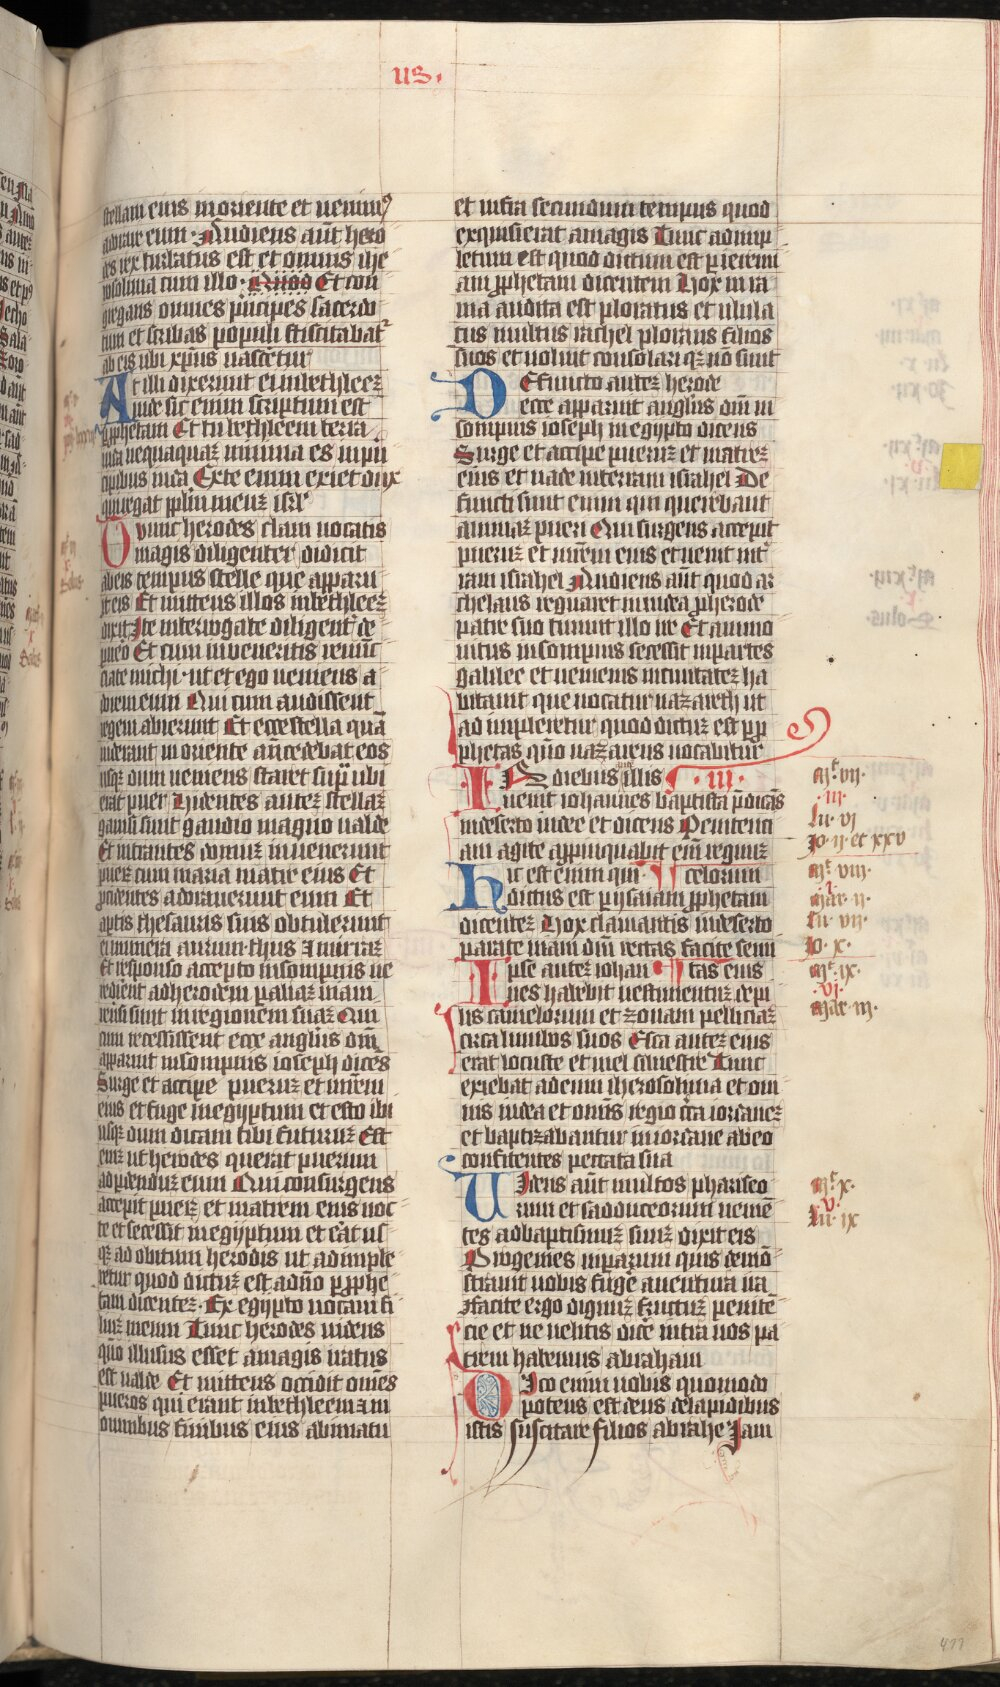 us.
stellam eius in oriente et venimꝰ
adorare eum · Audiens aūt hero
des rex turbatus est et omnis ihe
rosolima cum illo · Et con
gregans omnes p̄ncipes sacerdo
tum et scribas populi sciscitabat᷑
ab eis ubi xp̄us nascetur
At illi dixerunt ei in bethleeꝫ
iude sic enim scriptum est
ꝓphetam Et tu bethleem terra
iuda nequaquaꝫ minima es in pn̄
cipibus iuda Ex te enim exiet dux
qui regat pl̄m meuꝫ isrl̄
Tunc herodes clam vocatis
magis diligenter didicit
ab eis tempus stelle que apparu
it eis Et mittens illos in bethleeꝫ
dixit Ite interrogate diligent᷑ de
puero Et cum inveneritis renūc
iate michi · ut et ego veniens a
dorem eum Qui cum audissent
regem abierunt Et ecce stella quā
viderant in oriente an̄cedebat eos
usqꝫ dum veniens staret sup̄ ubi
erat puer Videntes auteꝫ stellaꝫ
gavisi sunt gaudio magno valde
Et intrantes domuꝫ invenerunt
pueꝝ cum maria matre eius Et
ꝓcidentes adoraverunt eum Et
aptis thesauris suis obtulerunt
ei munera aurum · thus ⁊ mirraꝫ
Et responso accepto in sompnis ne
redirent ad herodem p aliaꝫ viam
reversi sunt in regionem suaꝫ Qui
cum recessissent ecce angl̄us dn̄i
apparuit in sompnis ioseph dicēs
Surge et accipe pueruꝫ et mr̄em
eius et fuge in egyptum et esto ibi
usqꝫ dum dicam tibi futuruꝫ est
eniꝫ ut herodes querat puerum
ad pdenduꝫ eum Qui consurgens
accepit pueꝝ et matrem eius noc
te et secessit in egyptum et erat us
qꝫ ad obitum herodis ut adimple
retur quod dictuꝫ est a dn̄o p ꝓphe
tam dicenteꝫ · Ex egypto vocavi fi
liuꝫ meum Tunc herodes videns
qm̄ illusus esset a magis iratus
est valde Et mittens occidit om̄es
pueros qui erant in bethleem ⁊ in
omnibus finibus eius a bimatu
et infra secundum tempus quod
exquisierat a magis Tunc adimp
letum est quod dictum est p ieremi
am ꝓphetam dicentem Vox in ra
ma audita est ploratus et ulula
tus multus rachel plorans filios
suos et noluit consolari qꝫ nō sunt
Defuncto auteꝫ herode
ecce apparuit angl̄us dn̄i in
sompnis ioseph in egypto dicens
Surge et accipe pueruꝫ et matreꝫ
eius et vade in terram israhel De
functi sunt enim qui querebant
animaꝫ pueri Qui surgens accepit
pueruꝫ et mr̄em eius et venit int᷑
ram israhel Audiens aūt quod ar
chelaus regnaret in iudea ꝓ herode
patre suo timuit illo ire Et ammo
nitus in sompnis secessit in partes
galilee et veniens in civitateꝫ ha
bitavit que vocatur nazareth ut
ad impleretur quod dictuꝫ est p ꝓ
phetas qm̄ nazareus vocabitur
IN diebus illis · iii ·
venit iohannes baptista p̄dicās
in deserto iudee et dicens Penitenci
am agite appinquabit eīm regnuꝫ
celorum
Hic est enim qui
dictus est p ysaiam ꝓphetam
dicenteꝫ Vox clamantis in deserto
parate viam dn̄i rectas facite semi
tas eius
Ipse auteꝫ iohan
nes habebit vestimentuꝫ de pi
lis camelorum et zonam pelliciaꝫ
circa lumbos suos Esca auteꝫ eius
erat locuste et mel silvestre Tunc
exiebat ad eum iherosolima et om
nis iudea et omīs regio c̄ca iordaneꝫ
et baptizabantur in iordane ab eo
confitentes peccata sua
Videns aūt multos phariseo
rum et saduceorum venie͞
tes ad baptismuꝫ suuꝫ dixit eis
Progenies viperarum quis demō
stravit vobis fugē a ventura ira
Facite ergo dignuꝫ fructuꝫ penitē
cie et ne velitis dicē intra vos pa
trem habemus abraham
Dico enim vobis quomodo
potens est deus de lapidibus
istis suscitare filios abrahe Jam
Mͭ vii ·
· iii ·
Lu · vi
Jo · ii · et xxv
Mͭ viii ·
Mar · ii ·
Lu · vii ·
Jo · x ·
Mͭ ix ·
vi ·
Mar · iii ·
Mͭ x ·
v ·
Lu · ix
477